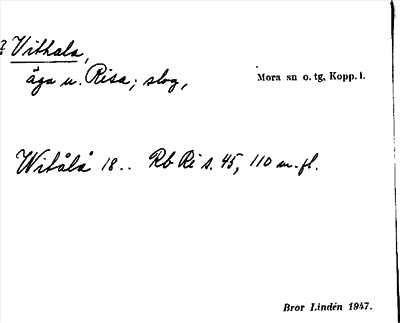 ? Vithala,
äga u. Risa; slog,
Mora sn o. tg, Kopp. l.
Witålå 18.. Rb Ri s. 45, 110 m. fl.
Bror Lindén 1947.